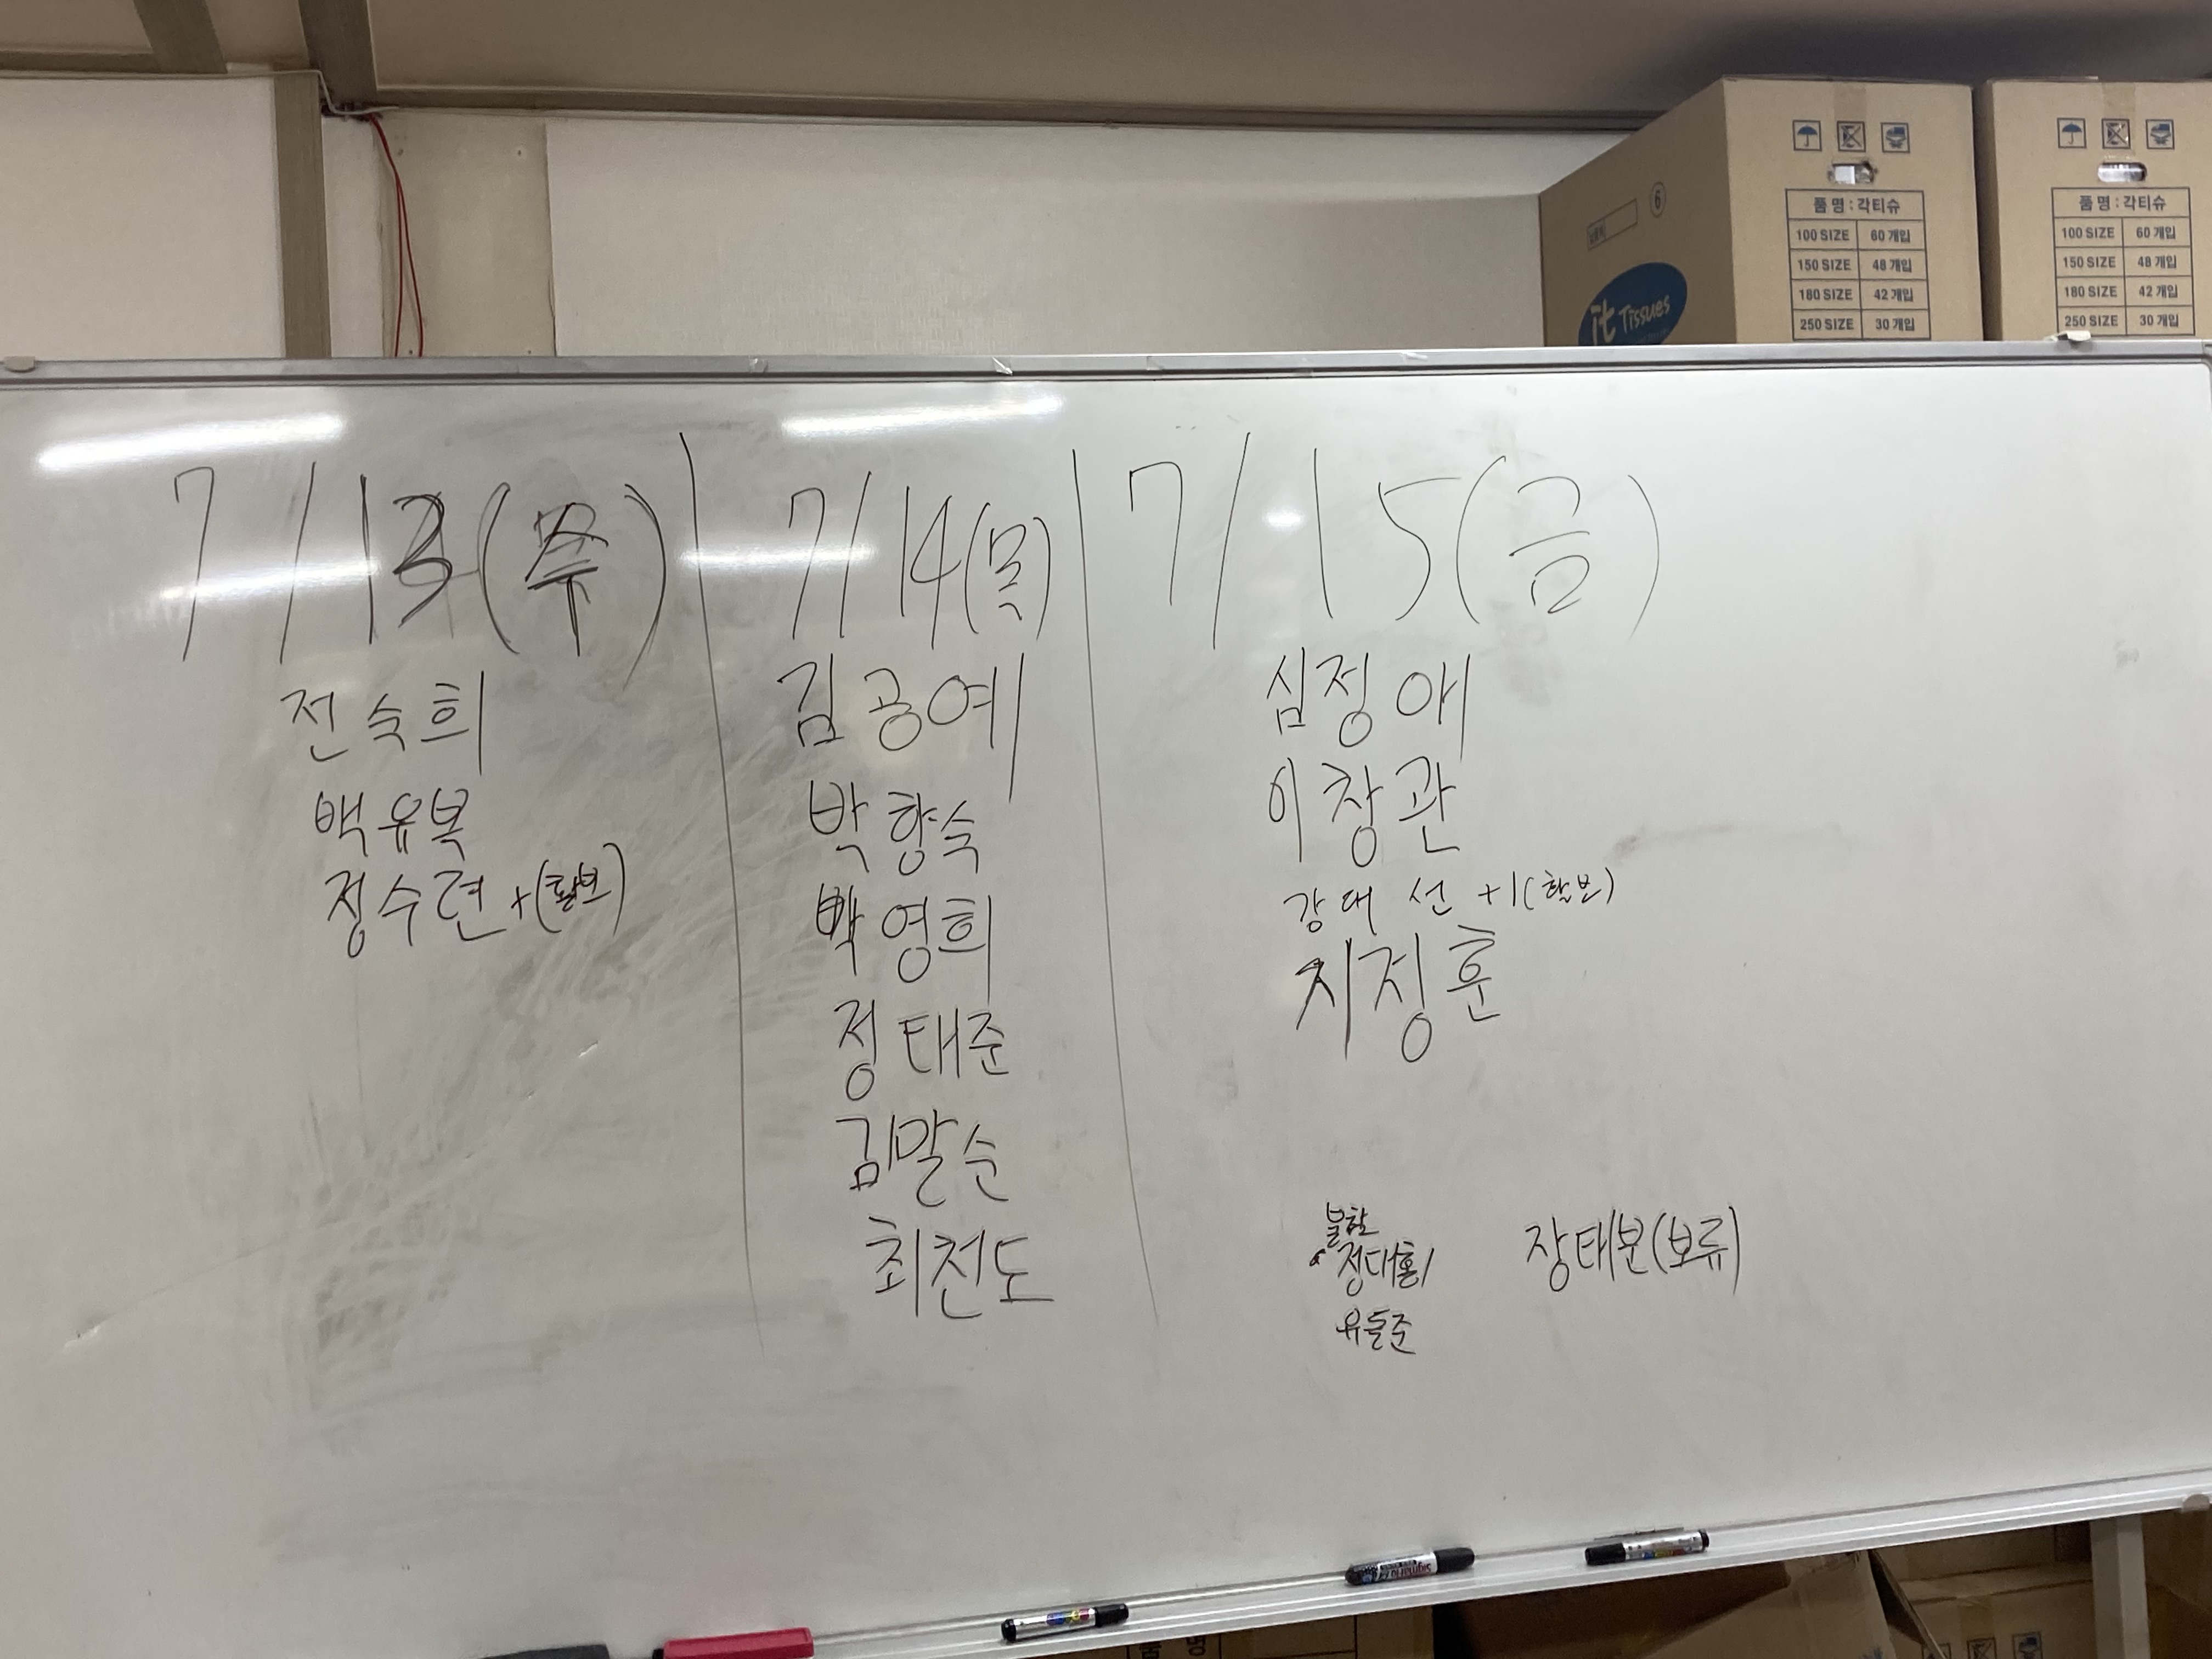 품 명 : 각티슈
100 SIZE 60 개입
150 SIZE 48 개입
180 SIZE 42 개입
250 SIZE 30 개입
품 명 : 각티슈
100 SIZE 60 개입
150 SIZE 48 개입
180 SIZE 42 개입
250 SIZE 30 개입
6
it Tissues
7/13(수)
전숙희
백유복
정수련 +(활보)
7/14(목)
김공예
박향숙
백영희
정태준
김말순
최천도
7/15(금)
심정애
이창관
강대선 +1(활보)
지정훈
불참
정대홍
유들준
장태분(보류)